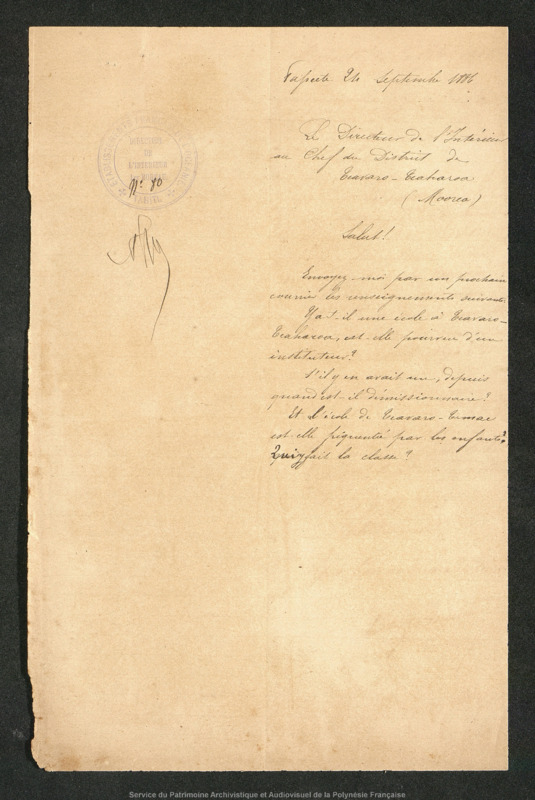 Papeete 24 Septembre 1886
Le Directeur de l'Intérieur
au Chef du District de
Teavaro-Teaharoa
(Moorea)
Salut!
Envoyez-moi par un prochain
courrier les renseignements suivants.
Y a-t-il une école à Teavaro-
Teaharoa, est-elle pourvue d'un
instituteur?
S'il y en avait un, depuis
quand est-il démissionnaire?
Et l'école de Teavaro-
est-elle fréquentée par les enfants?
Qui y fait la classe?
DIRECTION
DE
L'INTERIEUR
N° 80
Service du Patrimoine Archivistique et Audiovisuel de la Polynésie Française